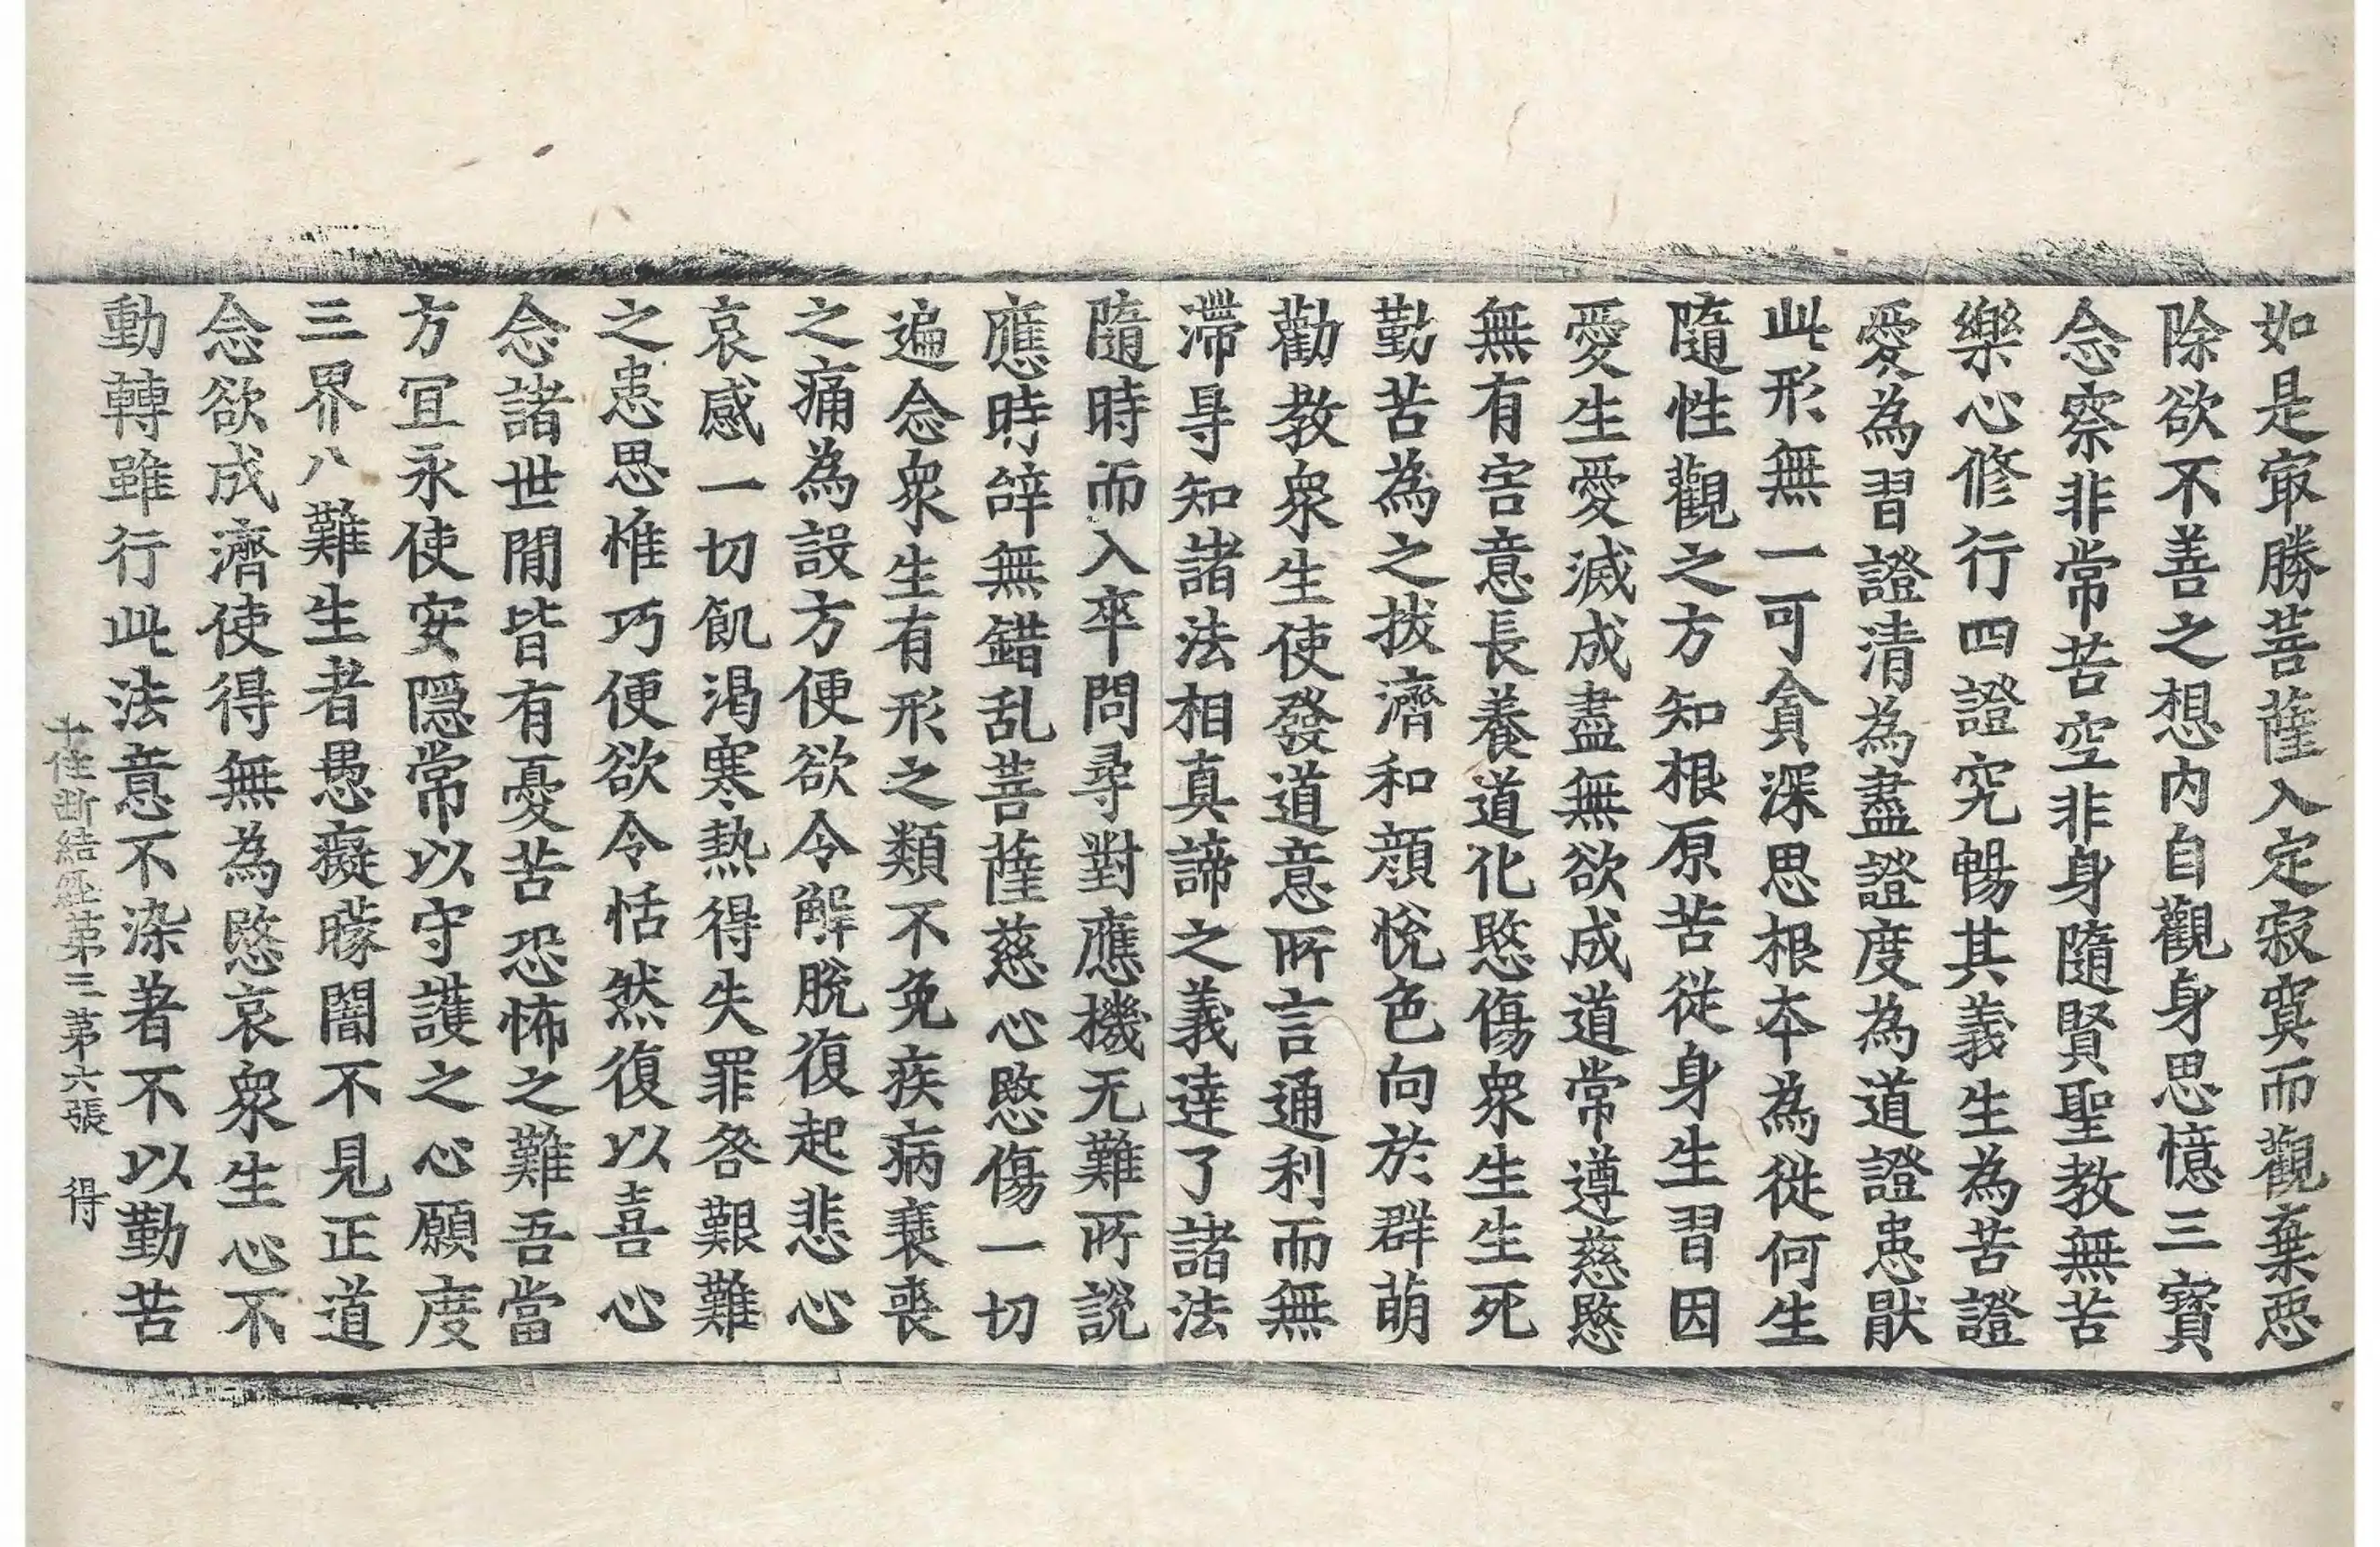 如是㝡勝菩薩入定寂寞而觀棄惡
除欲不善之想內自觀身思憶三寶
念察非常苦空非身隨賢聖教無苦
樂心修行四證究暢其義生為苦證
愛為習證清為盡證度為道證患猒
此形無一可貪深思根本為從何生
隨性觀之方知根原苦從身生習因
愛生愛滅成盡無欲成道常遵慈愍
無有害意長養道化愍傷眾生生死
勤苦為之拔濟和顏悅色向於群萌
勸教眾生使發道意所言通利而無
滯㝵知諸法相真諦之義達了諸法
隨時而入卒問尋對應機无難所說
應時辝無錯乱菩薩慈心愍傷一切
遍念眾生有形之類不免疾病衰喪
之痛為設方便欲令解脫復起悲心
哀感一切飢渴寒熱得失罪咎艱難
之患思惟巧便欲令恬然復以喜心
念諸世間皆有憂苦恐怖之難吾當
方宜永使安隱常以守護之心願度
三界八難生者愚癡矇闇不見正道
念欲成濟使得無為愍哀眾生心不
動轉雖行此法意不染著不以勤苦
十住斷結經第三 第六張 得